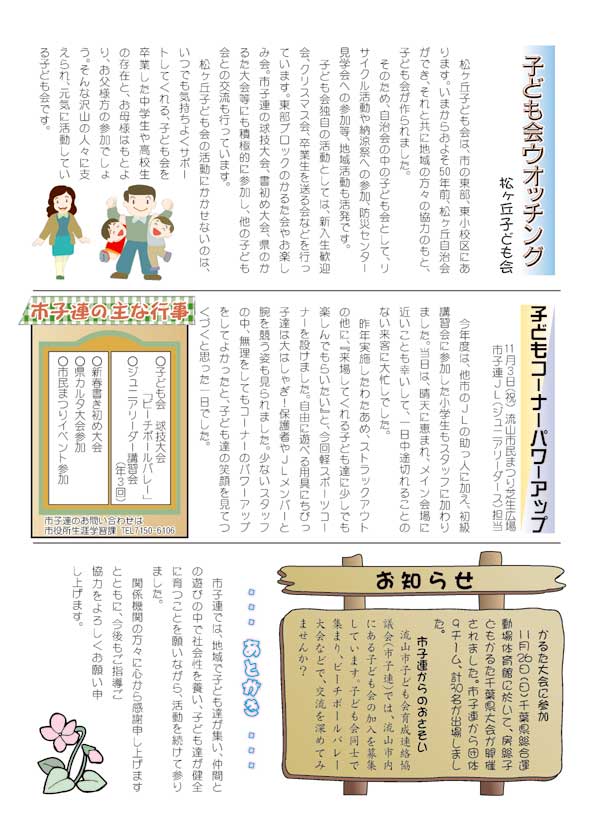 子ども会ウオッチング
松ヶ丘子ども会
松ヶ丘子ども会は、市の東部、東小校区にあ
ります。いまからおよそ50年前、松ヶ丘自治会
ができ、それと共に地域の方々の協力のもと、
子ども会が作られました。
そのため、自治会の中の子ども会として、リ
サイクル活動や納涼祭への参加、防災センター
見学会への参加等、地域活動も活発です。
子ども会独自の活動としては、新入生歓迎
会、クリスマス会、卒業生を送る会などを行っ
ています。東部ブロックのかるた会やお楽し
み会。市子連の球技大会、書初め大会、県のか
るた大会等にも積極的に参加し、他の子ども
会との交流も行っています。
松ヶ丘子ども会の活動にかかせないのは、
いつでも気持ちよくサポー
トしてくれる、子ども会を
卒業した中学生や高校生
の存在と、お母様はもとよ
り、お父様方の参加でしょ
う。そんな沢山の人々に支
えられ、元気に活動してい
る子ども会です。
子どもコーナーパワーアップ
11月3日(祝) 流山市民まつり芝生広場
市子連JL(ジュニアリーダース)担当
今年度は、他市のJLの助っ人に加え、初級
講習会に参加した小学生もスタッフに加わり
ました。当日は、晴天に恵まれ、メイン会場に
近いことも幸いして、一日中途切れることの
ない来客に大忙しでした。
昨年実施したわたあめ、ストラックアウト
の他に、『来場してくれる子ども達に少しでも
楽しんでもらいたい』と、今回軽スポーツコー
ナーを設けました。自由に遊べる用具にちびっ
子達は大はしゃぎ!保護者やJLメンバーと
腕を競う姿も見られました。少ないスタッフ
の中、無理をしてもコーナーのパワーアップ
をしてよかったと、子ども達の笑顔を見てつ
くづくと思った一日でした。
市子連の主な行事
○子ども会 球技大会
「ビーチボールバレー」
○ジュニアリーダー講習会
(年3回)
○新春書き初め大会
○県カルタ大会参加
○市民まつりイベント参加
市子連のお問い合わせは
市役所生涯学習課 TEL7150-6106
お知らせ
かるた大会に参加
11月26日(日)千葉県総合運
動場体育館に於いて、房総子
どもかるた千葉県大会が開催
されました。市子連から団体
9チーム、計30名が出場しまし
た。
市子連からのおさそい
流山市子ども会育成連絡協
議会(市子連)では、流山市内
にある子ども会の加入を募集
しています。子ども会同士で
集まり、ビーチボールバレー
大会などで、交流を深めてみ
ませんか?
・・・ あとがき ・・・
市子連では、地域で子ども達が集い、仲間と
の遊びの中で社会性を養い、子ども達が健全
に育つことを願いながら、活動を続けて参り
ました。
関係機関の方々に心から感謝申し上げます
とともに、今後もご指導ご
協力をよろしくお願い申
し上げます。